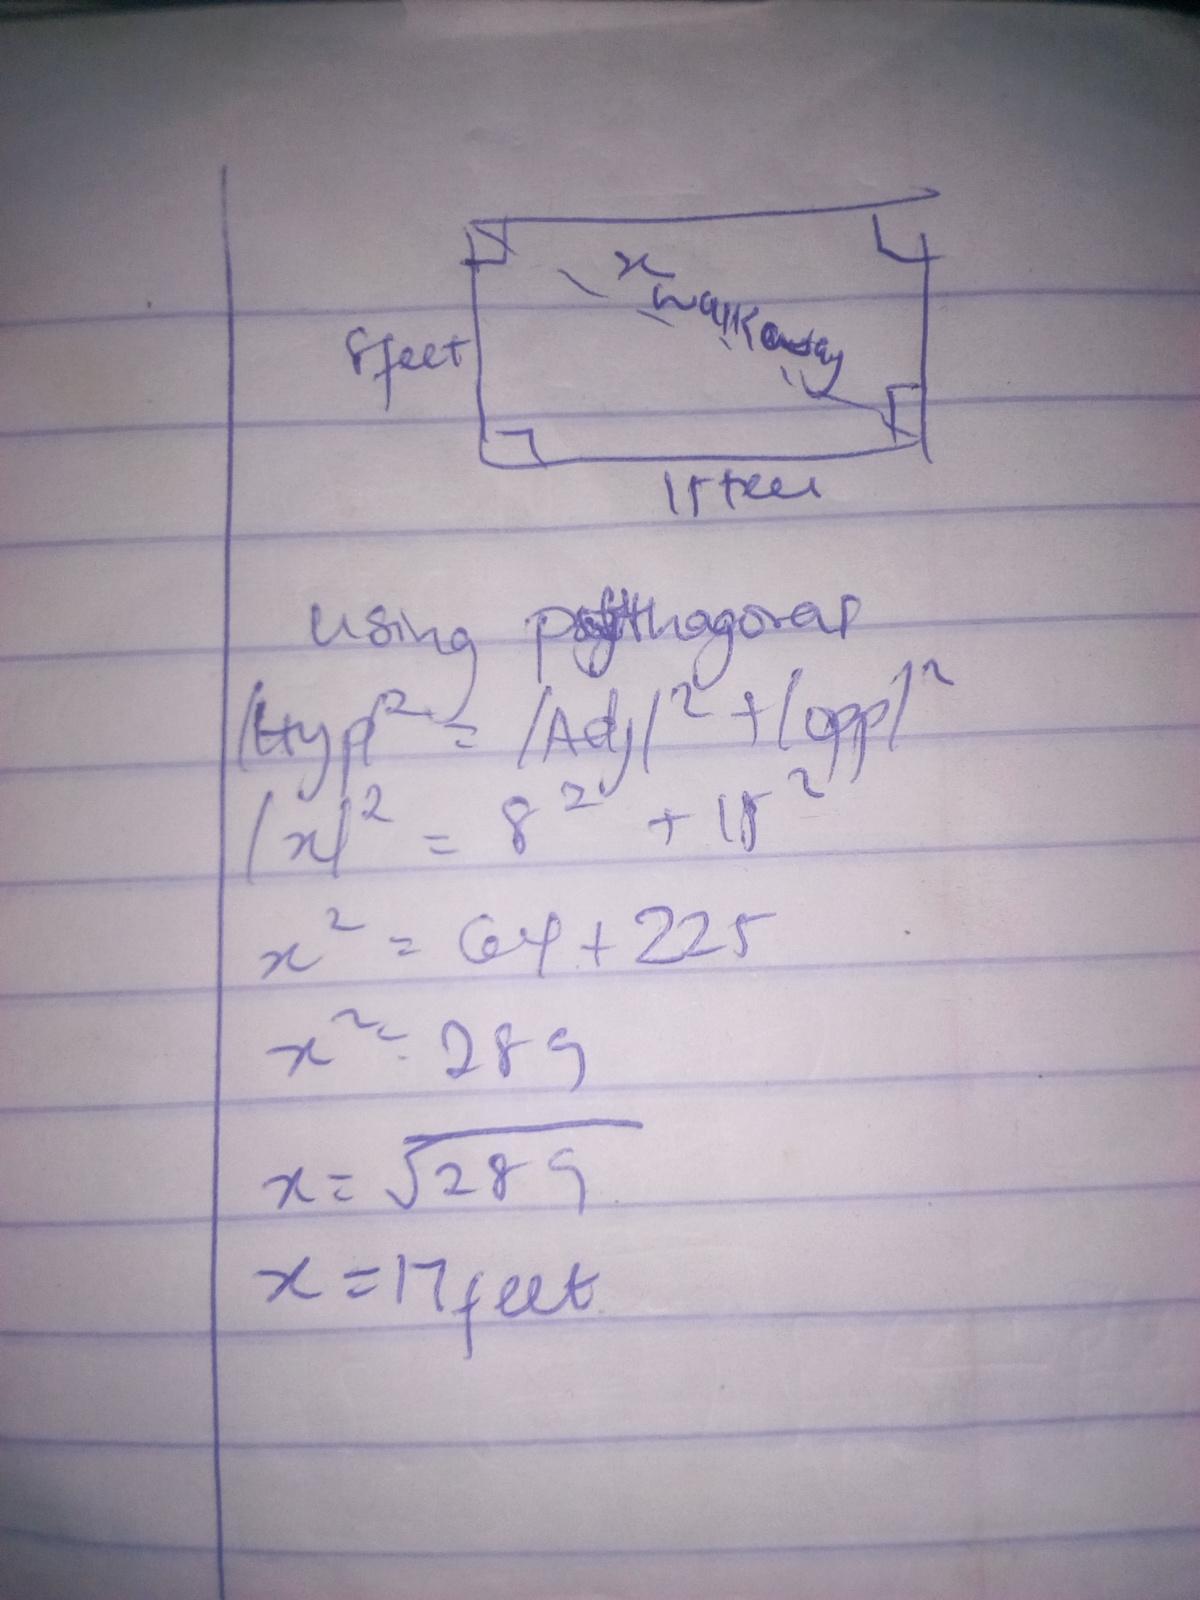 x
walkway
8feet
15feet
using pythagoras
(Hyp)² = (Adj)² + (opp)²
(x)² = 8² + 15²
x² = 64 + 225
x² = 289
x = √289
x = 17feet